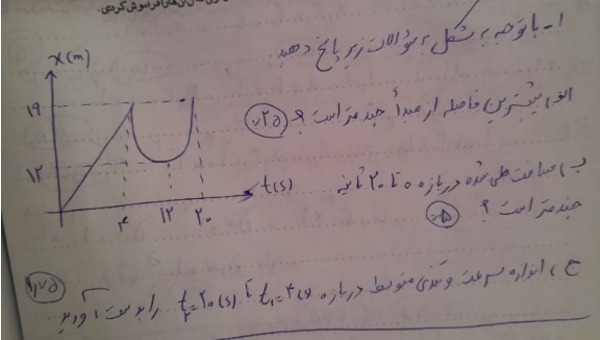 ۱- با توجه به شکل به سؤالات زیر پاسخ دهید
x(m)
۱۹
۱۲
t(s)
۴ ۱۲ ۲۰
الف) بیشترین فاصله از مبدأ چند متر است؟ ۰/۲۵
ب) مسافت طی شده در بازه ۰ تا ۲۰ ثانیه
چند متر است؟ ۰/۵
ج) اندازه سرعت و تندی متوسط در بازه t₁=۴(s) تا t₂=۲۰(s) را بدست آورید